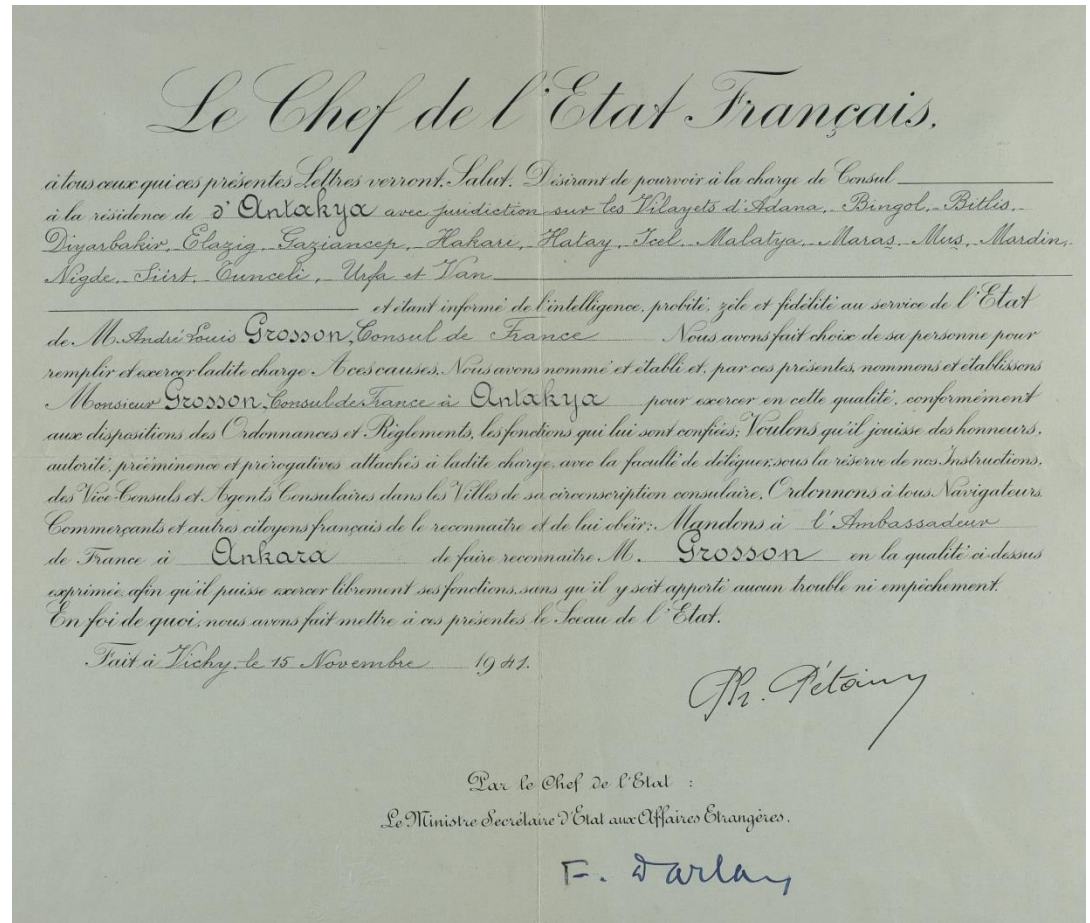 Le Chef de l'Etat Français.
à tous ceux qui ces présentes Lettres verront, Salut. Désirant de pourvoir à la charge de Consul
à la résidence de d'Antakya avec juridiction sur les Vilayets d'Adana, Bingol, Bitlis,
Diyarbakir, Elazig, Gaziancep, Hakari, Hatay, Icel, Malatya, Maras, Mus, Mardin,
Nigde, Siirt, Tunceli, Urfa et Van
et étant informé de l'intelligence, probité, zèle et fidélité au service de l'Etat
de M. André Louis Grosson, Consul de France Nous avons fait choix de sa personne pour
remplir et exercer ladite charge A ces causes, Nous avons nommé et établi et, par ces présentes, nommons et établissons
Monsieur Grosson, Consul de France à Antakya pour exercer en cette qualité, conformément
aux dispositions des Ordonnances et Règlements, les fonctions qui lui sont confiées; Voulons qu'il jouisse des honneurs,
autorité, prééminence et prérogatives attachés à ladite charge, avec la faculté de déléguer, sous la réserve de nos Instructions,
des Vice-Consuls et Agents Consulaires dans les Villes de sa circonscription consulaire, Ordonnons à tous Navigateurs
Commerçants et autres citoyens français de le reconnaitre et de lui obéir; Mandons à l'Ambassadeur
de France à Ankara de faire reconnaitre M. Grosson en la qualité ci-dessus
exprimée, afin qu'il puisse exercer librement ses fonctions, sans qu'il y soit apporté aucun trouble ni empêchement.
En foi de quoi, nous avons fait mettre à ces présentes le Sceau de l'Etat.
Fait à Vichy, le 15 Novembre 1941.
Ph. Pétain
Par le Chef de l'Etat :
Le Ministre Secrétaire d'Etat aux Affaires Etrangères.
F. Darlan